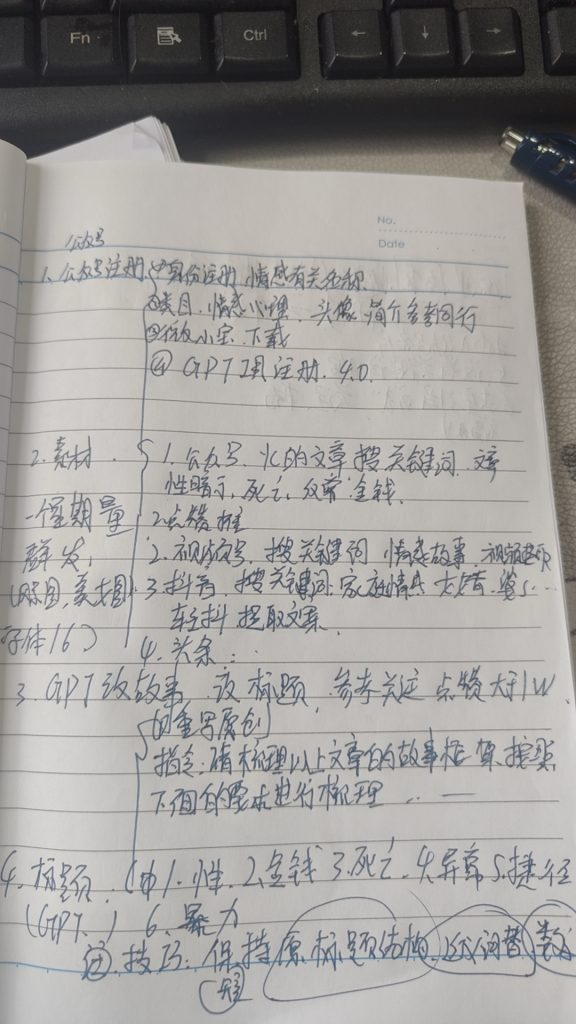 Fn
Ctrl
←
↓
→
No.
Date
公众号
1. 公众号注册 ①身份注册 情感有关名称
②类目. 情感心理. 头像 简介参考同行
下载
④ GPT 注册. 4.0.
2. 素材. 1. 公众号. 的文章 搜关键词.
性暗示, 死亡, 金钱.
一个星期量 2. 点赞
群发, 2. 视频号, 搜关键词 情感故事.
3. 抖音, 搜关键词. 家庭情
字体16) 轻抖 提取文案.
4. 头条..
3. GPT改故事. 标题, 参考 点赞大于1W
重写原创
指令: 请梳理以上文章的故事框架. 按照
下面的要求进行梳理 ... —
4. 标题. 1. 性. 2. 金钱 3. 死亡. 4. 异常 5. 捷径
(GPT.) 6. 暴力
技巧: 保持原标题结构. 词替